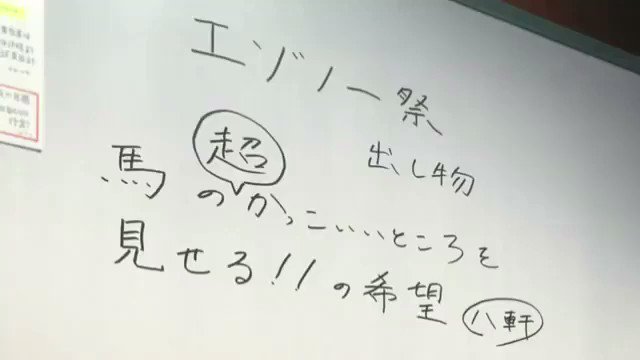 エゾノー祭
出し物
馬の超かっこいいところを
見せる!!の希望 八軒